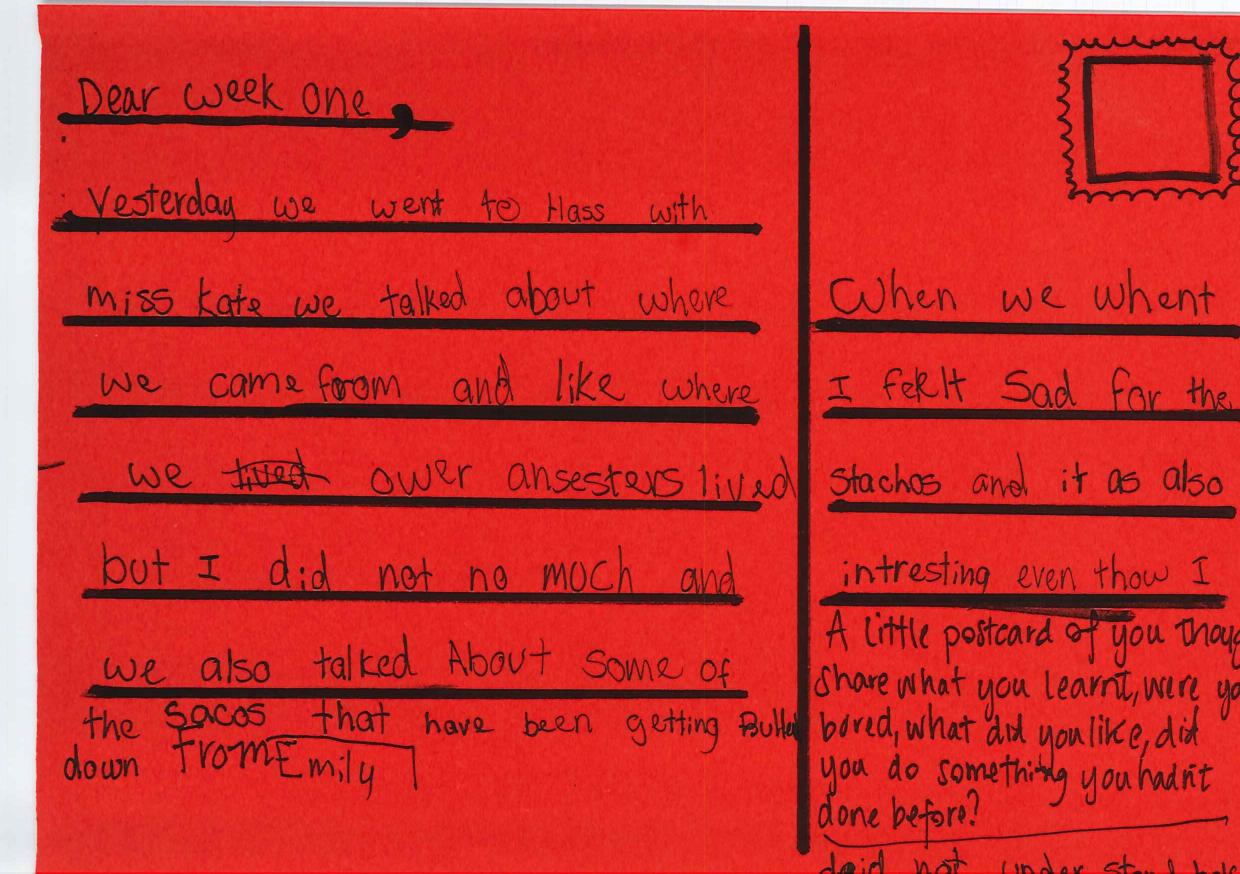 Dear week one,
Yesterday we went to Hass with
miss kate we talked about where
we came from and like where
we lived ower ansesters lived
but I did not no much and
we also talked About some of
the sacos that have been getting Bulled
down from Emily
When we whent
I felt Sad for the
stachos and it as also
intresting even thow I
A little postcard of you thoug
share what you learnt, were yo
bored, what did you like, did
you do something you hadn't
done before?
did not under stand